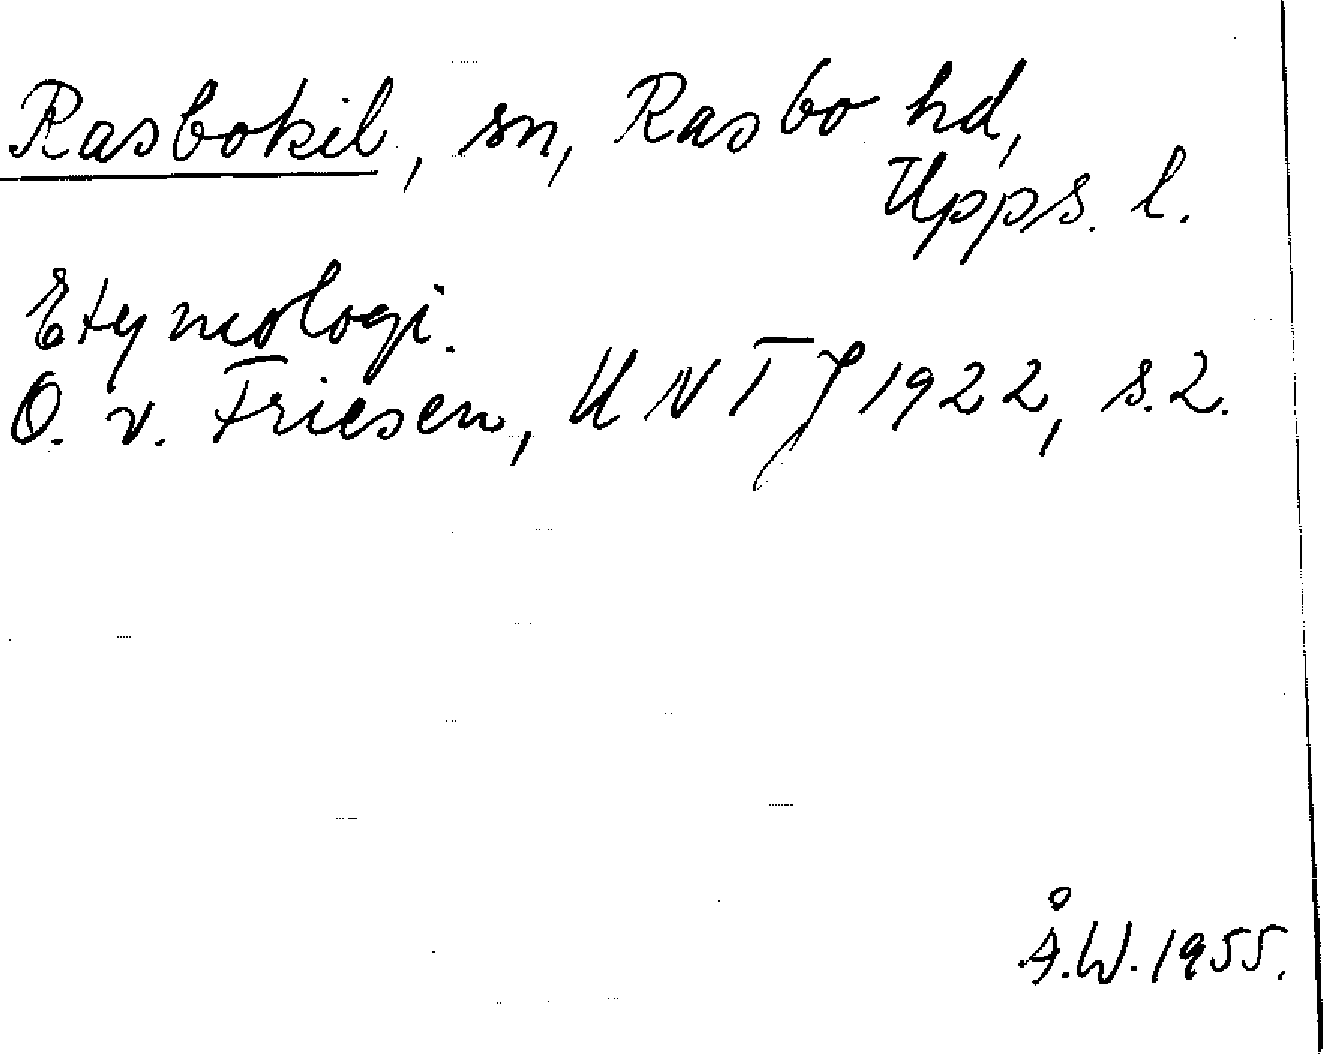 Rasbokil, sn, Rasbo hd,
Upps. l.
Etymologi.
O. v. Friesen, UNTJ 1922, s. 2.
Å.W. 1955.